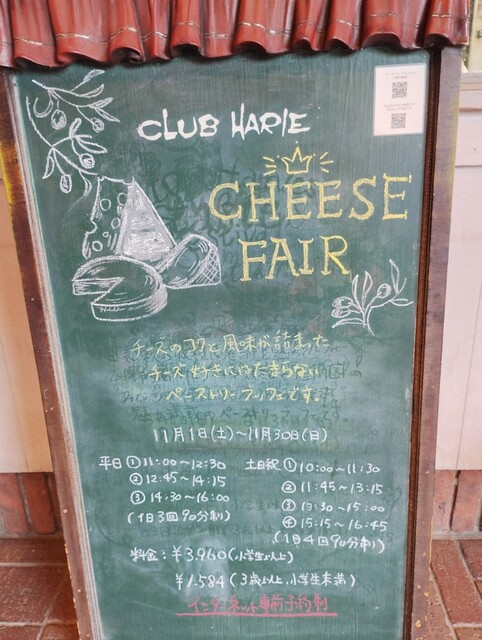 CLUB HARIE
CHEESE
FAIR
チーズのコクと風味が詰まった
チーズ好きにはたまらない
ペーストリーブッフェです。
11月1日(土)~11月30日(日)
平日 ①11:00~12:30
②12:45~14:15
③14:30~16:00
(1日3回90分制)
土日祝 ①10:00~11:30
②11:45~13:15
③13:30~15:00
④15:15~16:45
(1日4回90分制)
料金:¥3.960(小学生以上)
¥1.584(3歳以上、小学生未満)
インターネット事前予約制